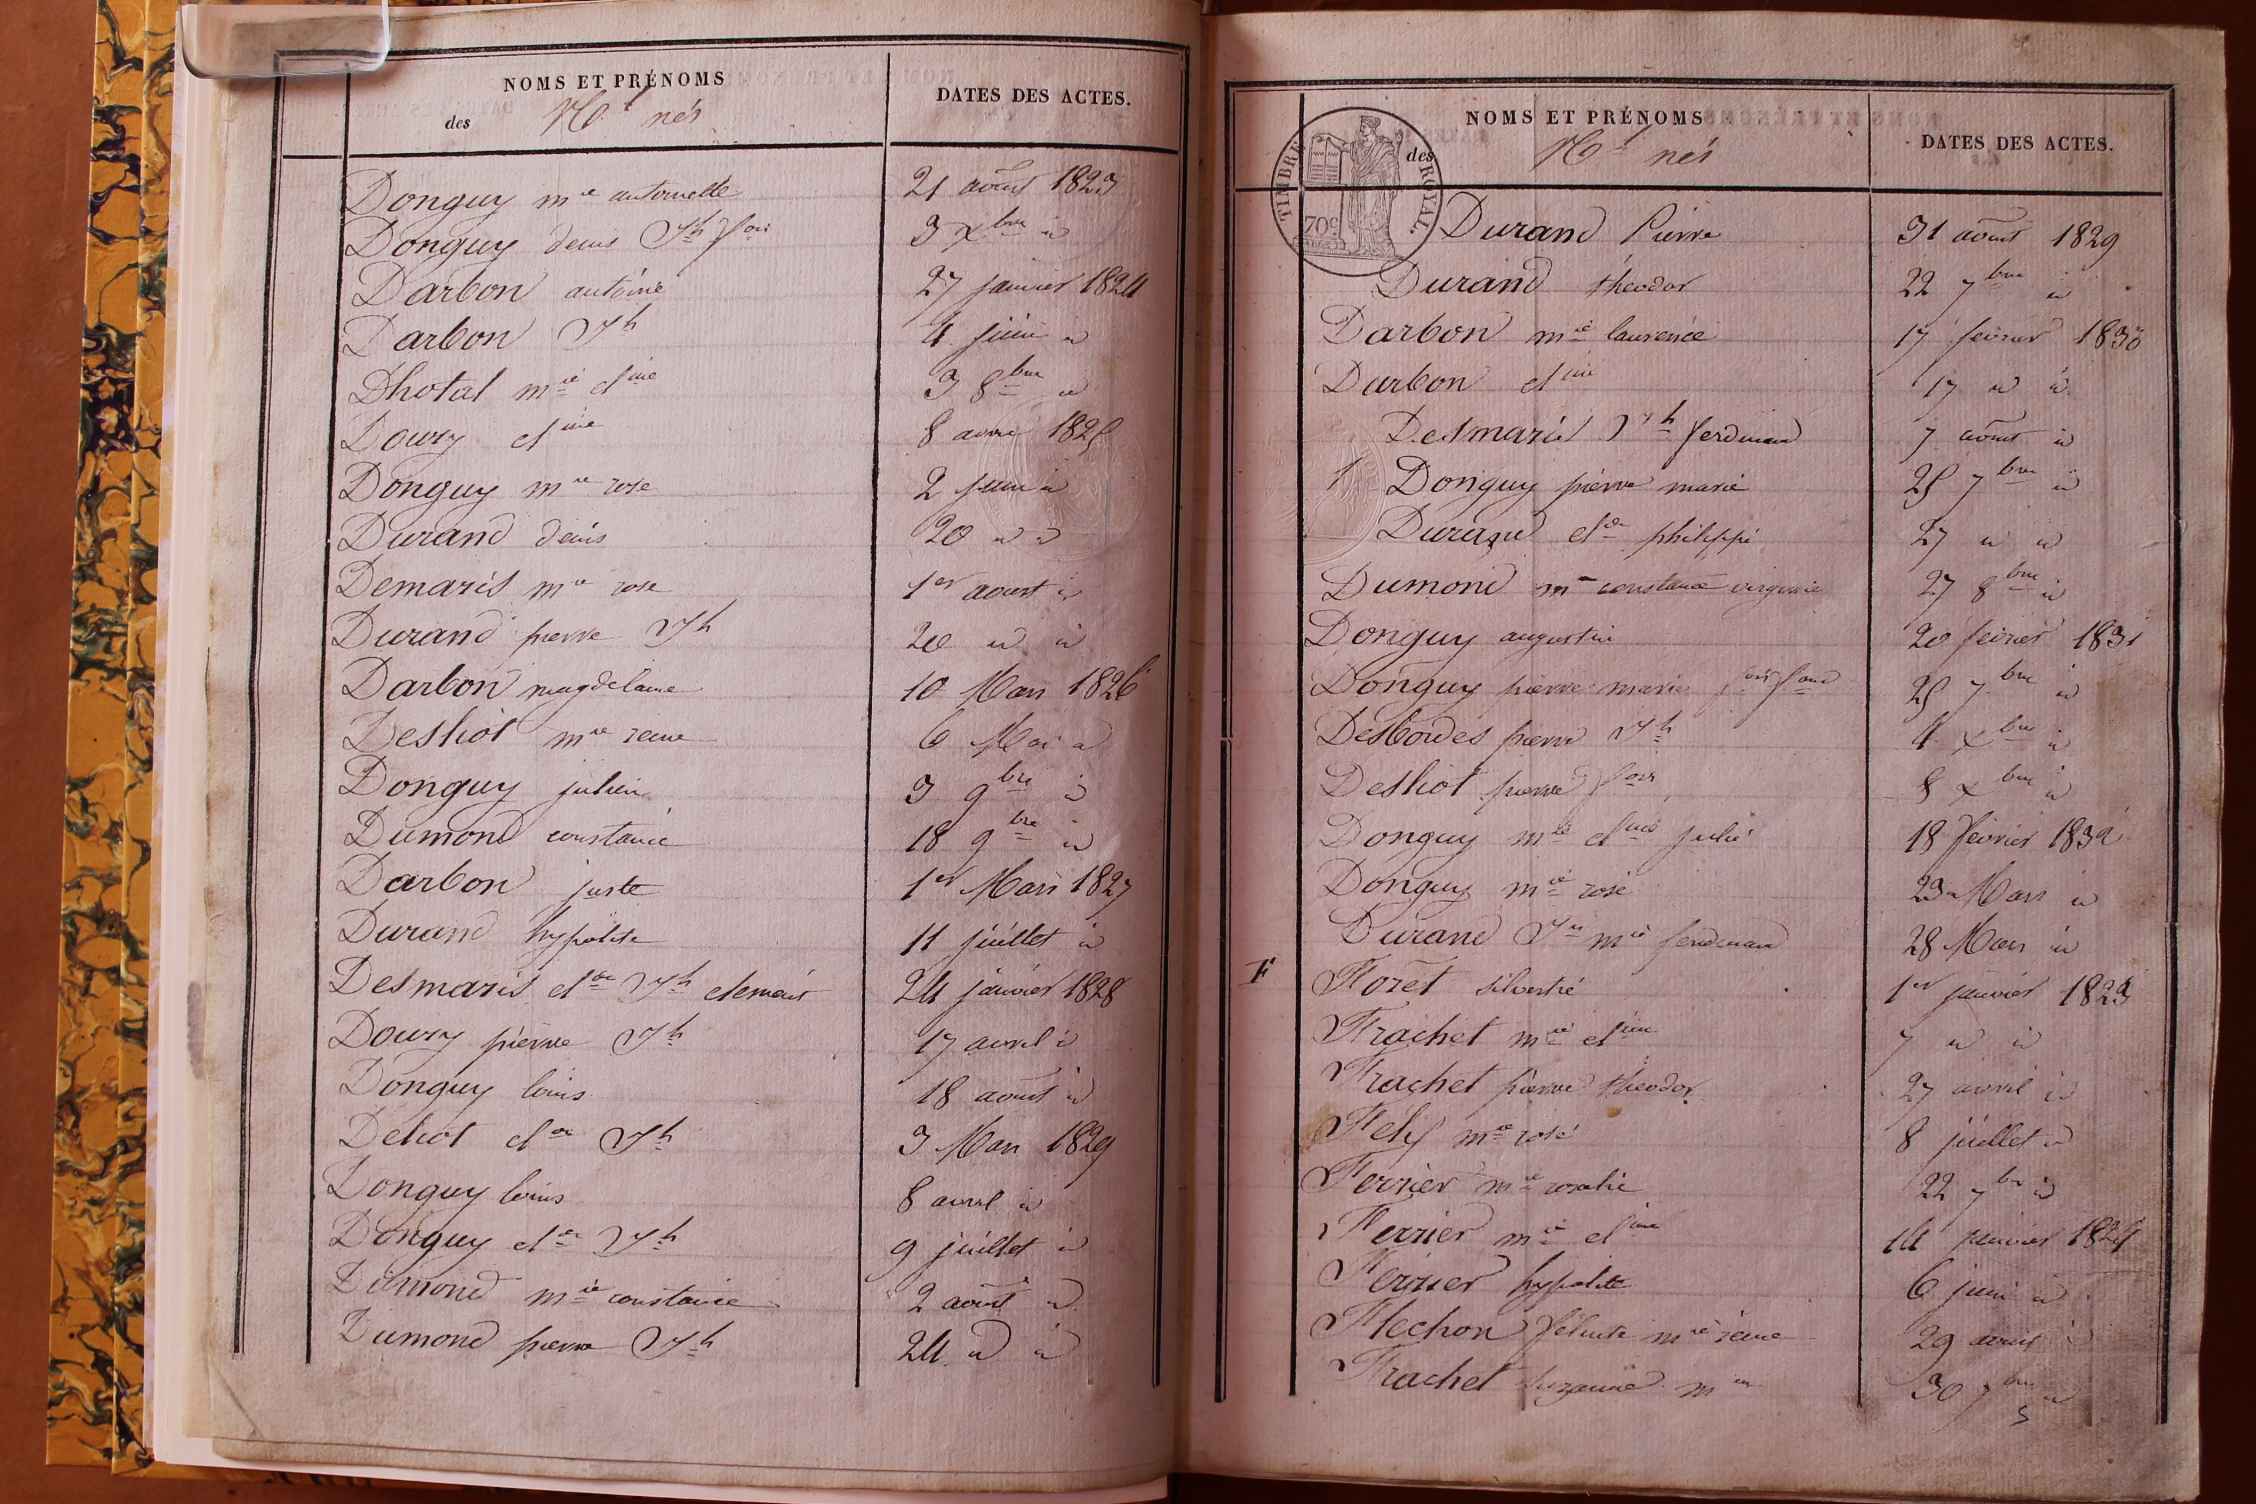 NOMS ET PRÉNOMS
des nés
DATES DES ACTES.
Donguy mie antoinette 21 août 1823
Donguy denis Jh fois 3 xbre id
Darbon antoine 27 janvier 1824
Darbon Jh 4 juin id
Dhotal mie cline 3 8bre id
Doury cline 8 avril 1825
Donguy mie rose 2 juin id
Durand denis 20 id id
Demaris mie rose 1er aoust id
Durand pierre Jh 20 id id
Darbon magdelaine 10 Mars 1826
Desliot mie reine 6 Mai id
Donguy julien 3 9bre id
Dumond constance 18 9bre id
Darbon juste 1er Mars 1827
Durand hypolite 11 juillet id
Desmaris clde Jh clement 24 janvier 1828
Doury pierre Jh 17 avril id
Donguy louis 18 août id
Deliot clde Jh 3 Mars 1829
Donguy louis 8 avril id
Donguy clde Jh 9 juillet id
Dumond mie constance 2 août id
Dumond pierre Jh 24 id id
NOMS ET PRÉNOMS
des nés
DATES DES ACTES.
TIMBRE ROYAL.
70c
Durand Pierre 31 août 1829
Durand théodor 22 7bre id
Darbon mie laurence 17 fevrier 1830
Darbon cline 17 id id
Desmaris Jh ferdinand 7 août id
1 Donguy pierre marie 25 7bre id
Durand clde philippe 27 id id
Dumond mie constance virginie 27 8bre id
Donguy augustin 20 fevrier 1831
Donguy pierre marie 25 7bre id
Desbordes pierre Jh 4 xbre id
Desliot pierre fois 8 xbre id
Donguy mie cline julie 18 fevrier 1832
Donguy mie rose 23 Mars id
Durand Jn mie ferdinand 28 Mars id
F Foret silvestre 1er janvier 1823
Frachet mie cline 7 id id
Frachet pierre théodor 27 avril id
Fely mie rose 8 juillet id
Ferrier mie rosalie 22 7bre id
Ferrier mie cline 14 janvier 1824
Ferrier hypolite 6 juin id
Flechon félicité mie reine 29 août id
Frachet suzanne mie 30 7bre id
5